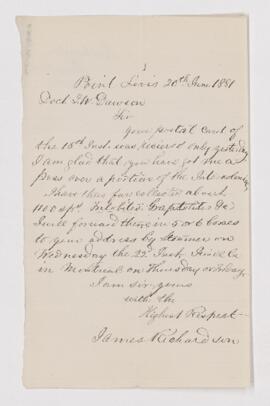 Point Levis 20th June 1881
Doct J. W. Dawson
Sir
Your postal card of
the 18th Inst. was received only yesterday
I am glad that you have got me a
pass over a portion of the Intercolonial
I have thus far collected about
1100 sps. Trilobites Graptolites &c
I will forward them in 5 or 6 boxes
to your address by Steamer on
Wednesday the 22d Inst. I will be
in Montreal on Thursday or Friday.
I am sir yours
with the
Highest Respect
James Richardson